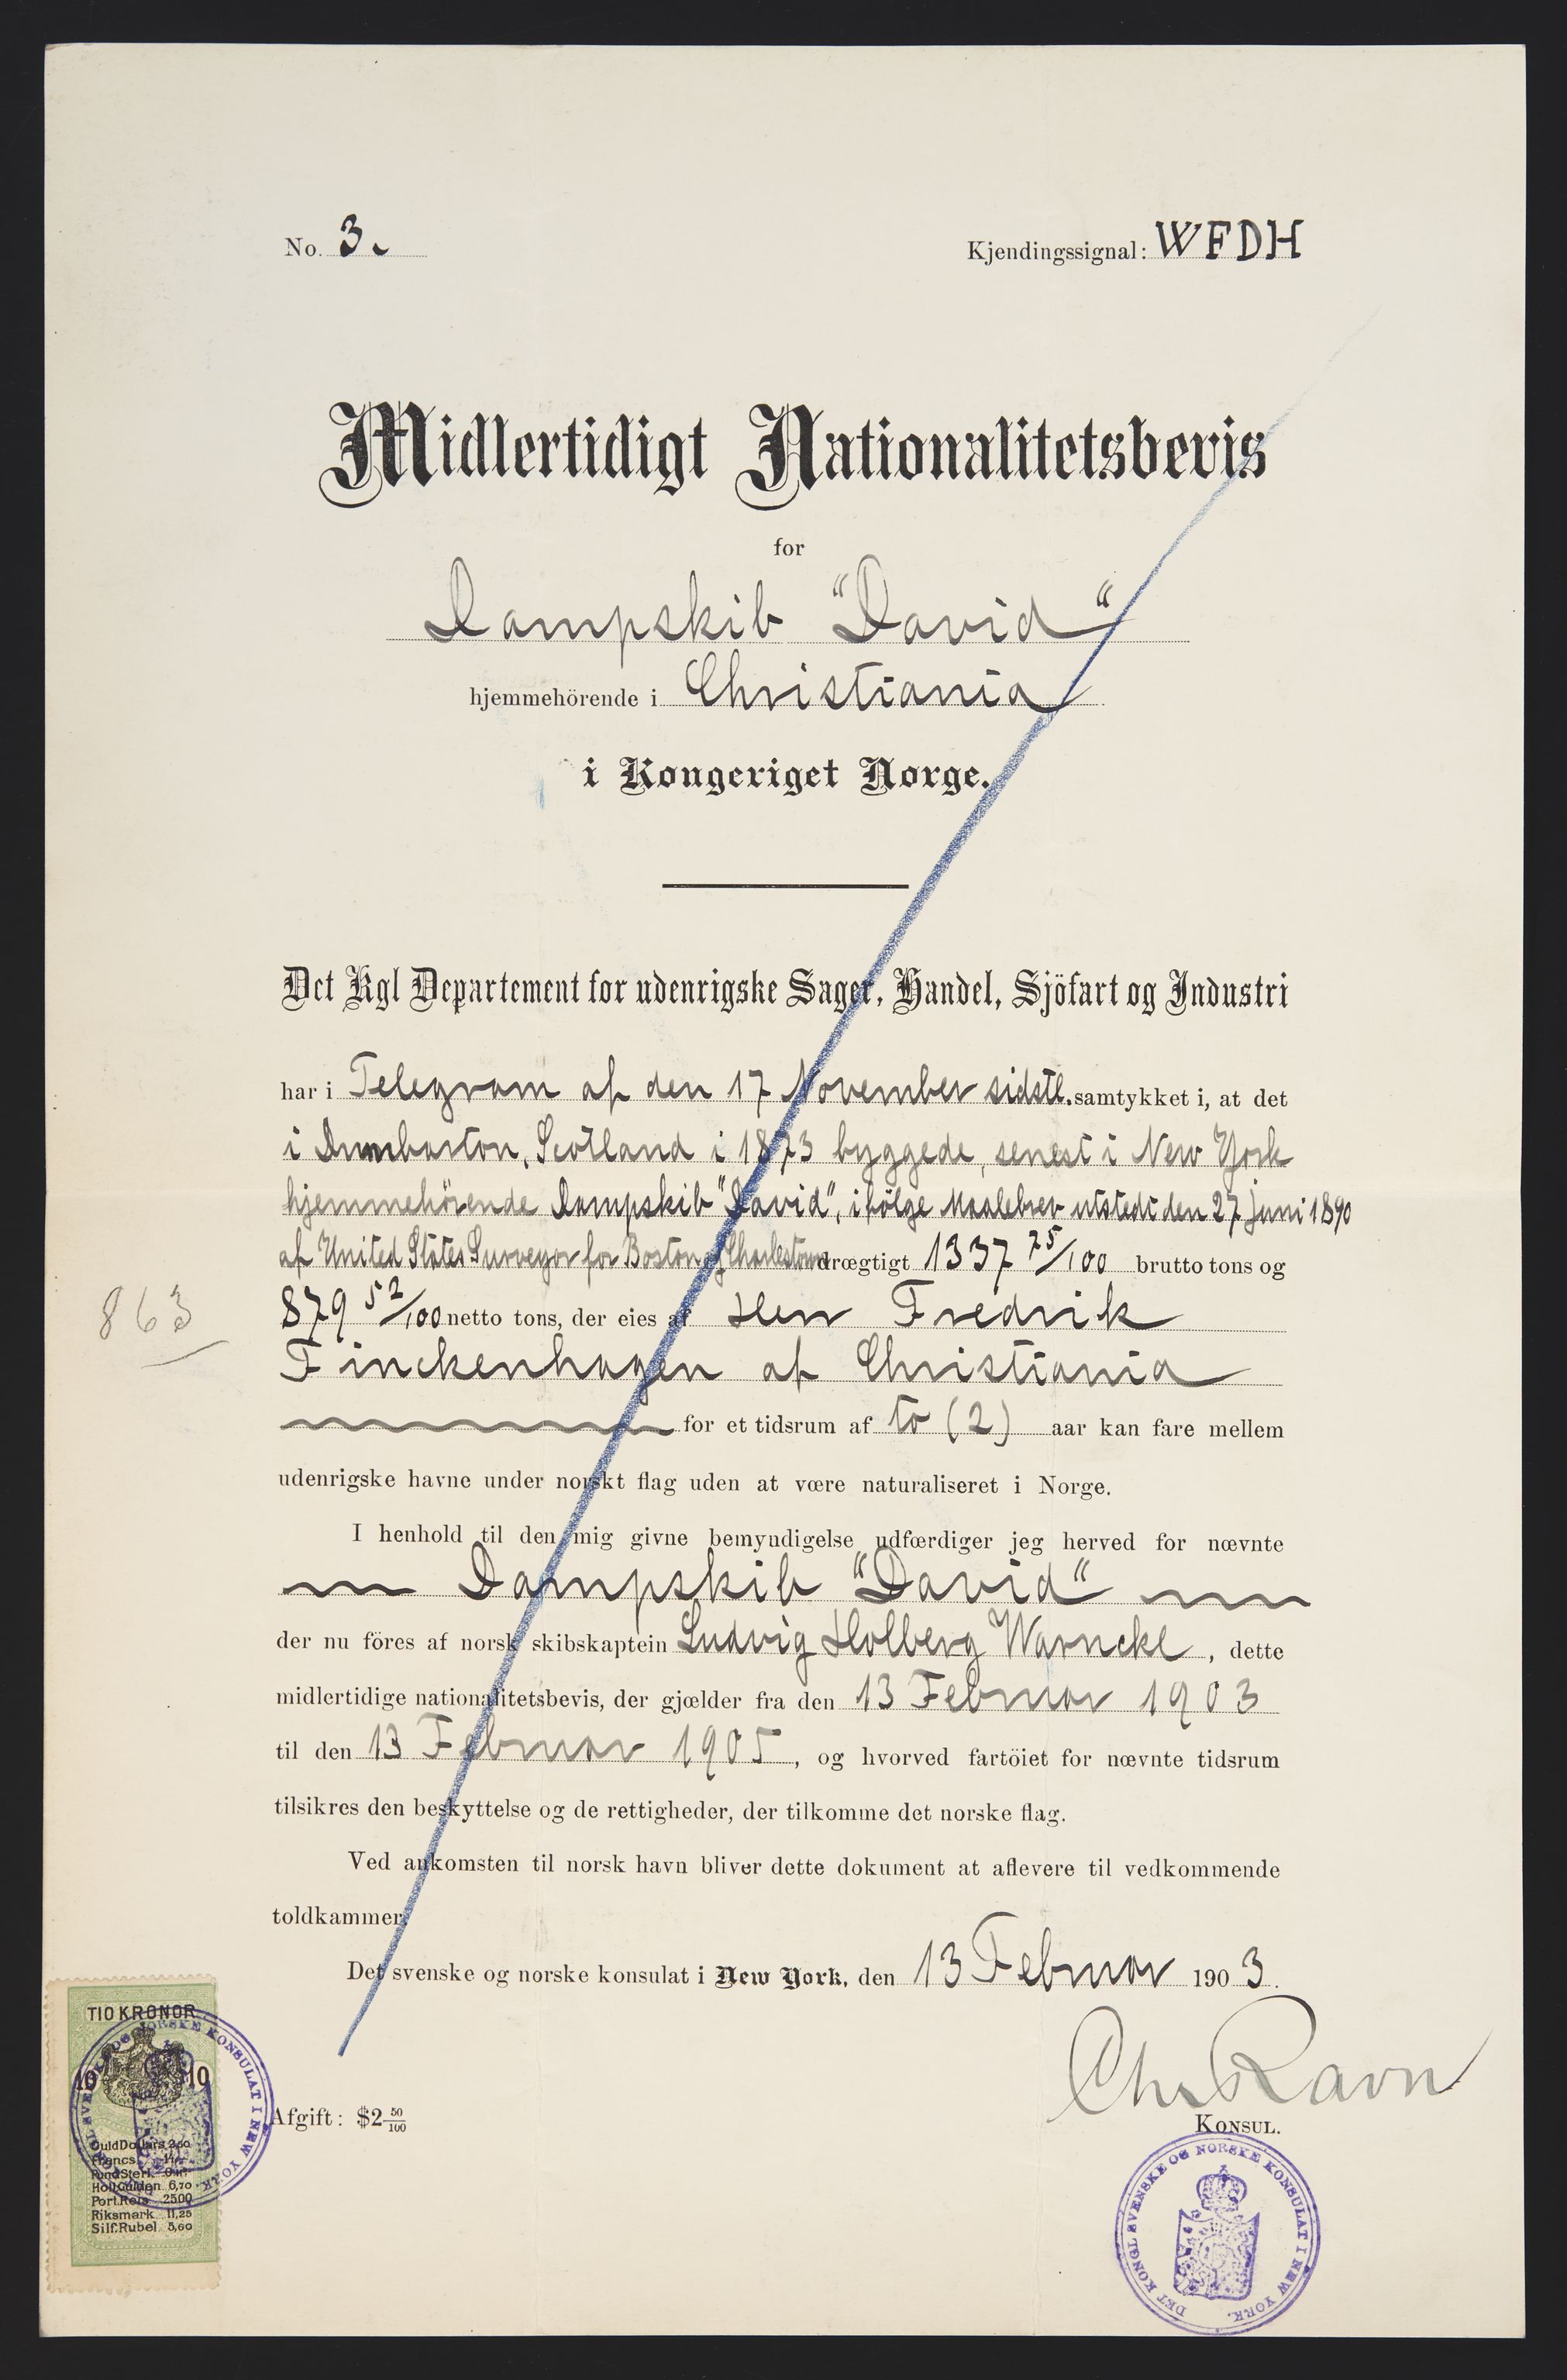 No. 3.
Kjendingssignal: WFDH
Midlertidigt Nationalitetsbevis
for
Dampskib "David"
hjemmehörende i Christiania
i Kongeriget Norge.
Det Kgl Departement for udenrigske Sager, Handel, Sjöfart og Industri
har i Telegram af den 17 November sidstl. samtykket i, at det
i Dumbarton, Scotland i 1873 byggede, senest i New York
hjemmehörende Dampskib "David", ifölge Maalebrev utstedt den 27 Juni 1890
af United States Surveyor for Boston og Charlestown drægtigt 1337 75/100 brutto tons og
863
879 52/100 netto tons, der eies af Herr Fredrik
Finckenhagen af Christiania
for et tidsrum af to (2) aar kan fare mellem
udenrigske havne under norskt flag uden at være naturaliseret i Norge.
I henhold til den mig givne bemyndigelse udfærdiger jeg herved for nævnte
Dampskib "David"
der nu föres af norsk skibskaptein Ludvig Holberg Warncke, dette
midlertidige nationalitetsbevis, der gjælder fra den 13 Februar 1903
til den 13 Februar 1905, og hvorved fartöiet for nævnte tidsrum
tilsikres den beskyttelse og de rettigheder, der tilkomme det norske flag.
Ved ankomsten til norsk havn bliver dette dokument at aflevere til vedkommende
toldkammer.
Det svenske og norske konsulat i New York, den 13 Februar 1903.
Chr Ravn
KONSUL.
Afgift: $2 50/100
TIO KRONOR
10 10
Guld Dollars 2,60
Francs 14,-
Pund Sterl.
Holl. Gulden 6,70
Port. Reis 2500
Riksmark 11,25
Silf. Rubel 5,60
DET KONGL SVENSKE OG NORSKE KONSULAT I NEW YORK.
DET KONGL SVENSKE OG NORSKE KONSULAT I NEW YORK.